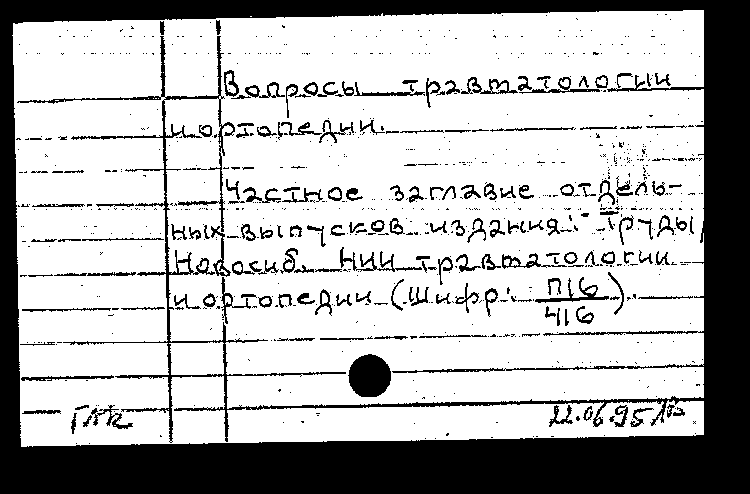 Вопросы травматологии
и ортопедии.
Частное заглавие отдель-
ных выпусков издания: Труды,
Новосиб. НИИ травматологии
и ортопедии (Шифр: П16/416).
22.06.95